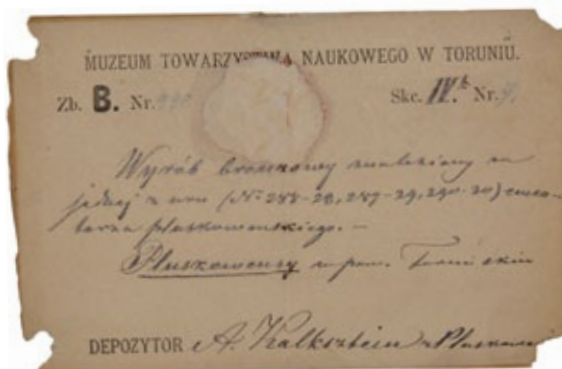 MUZEUM TOWARZYSTWA NAUKOWEGO W TORUNIU.
Zb. B. Nr. Skc. IV. Nr.
Wyrób bronzowy znaleziony w
jednej z urn (No 288-28, 289-29, 290-30) cmen-
tarza pluskowenskiego. —
Pluskowensy w pow. Toruńskim
DEPOZYTOR A. Kalkstein z Pluskowens